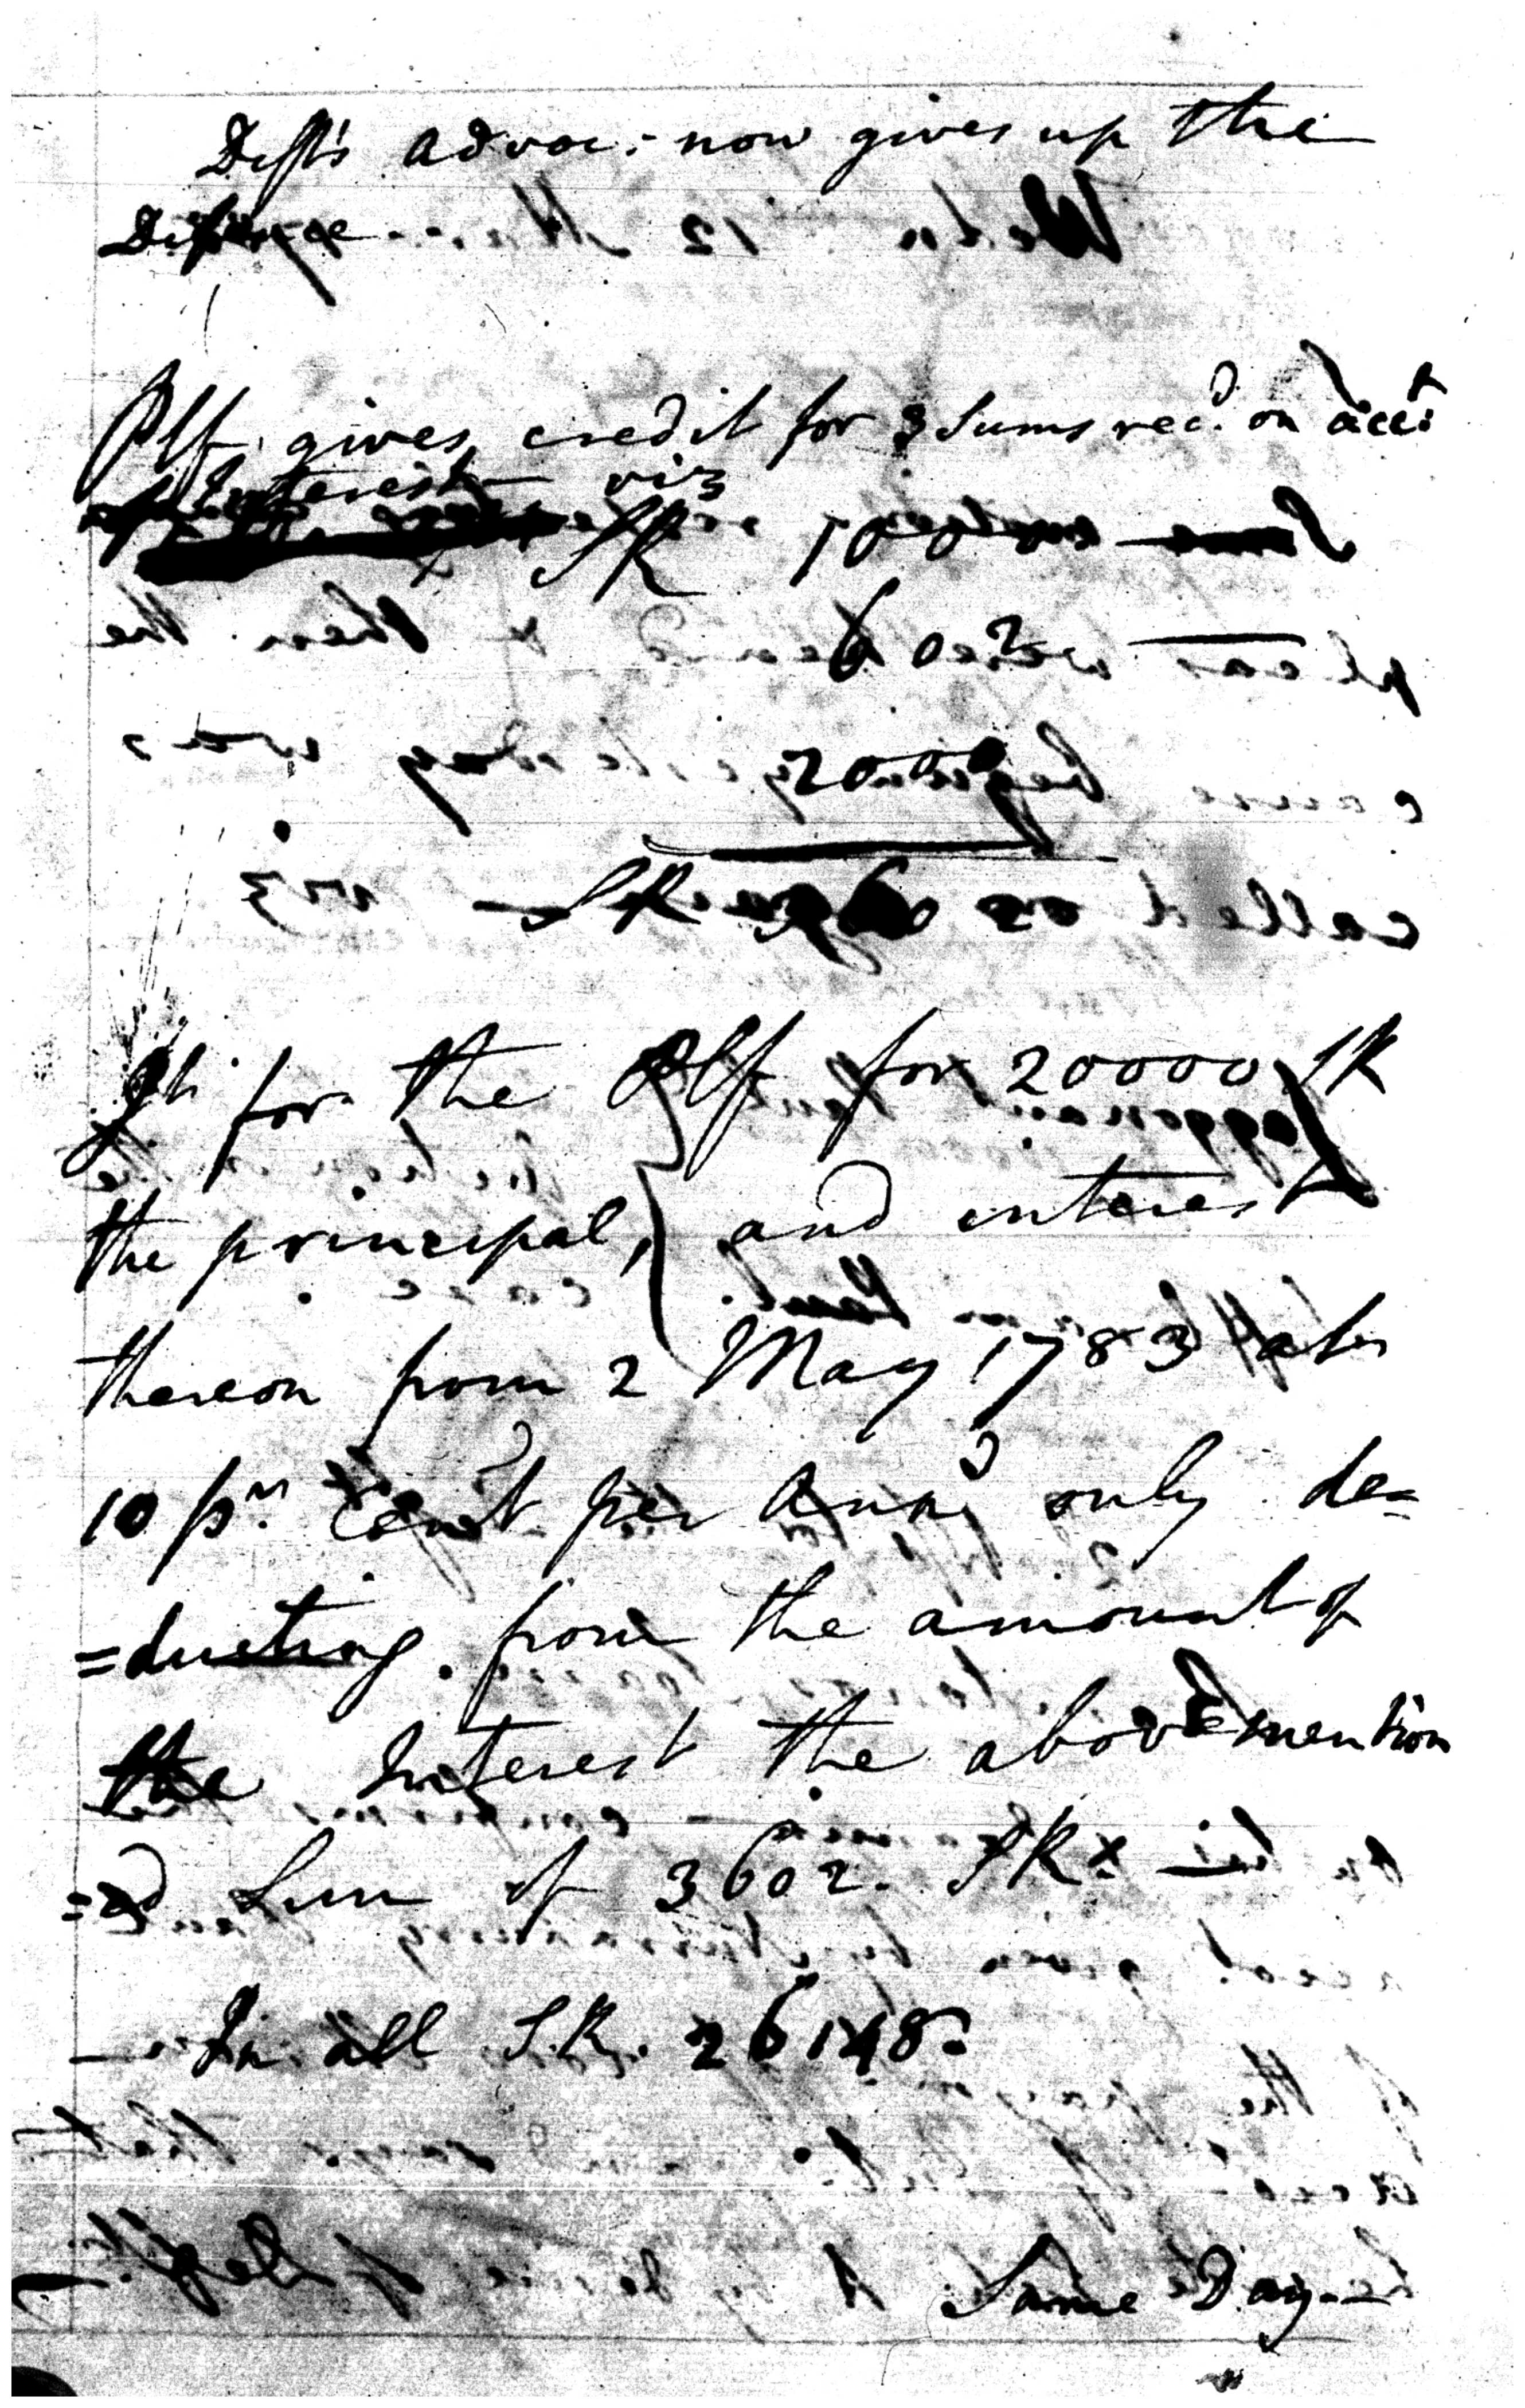 Defts advoc: now gives up the
Defence
Plf. gives credit for 3 Sums recd. on acct:
of Interest viz
SR 1000
602
2000
SR
Jt. for the Plf for 20000 SR
the principal, and interest
thereon from 2 May 1783 at
10 pr. Cent per Ann only de=
=ducting from the amount of
the Interest the abovemention
=ed Sum of 3602. SRs
In all S.R. 26148
Same Day